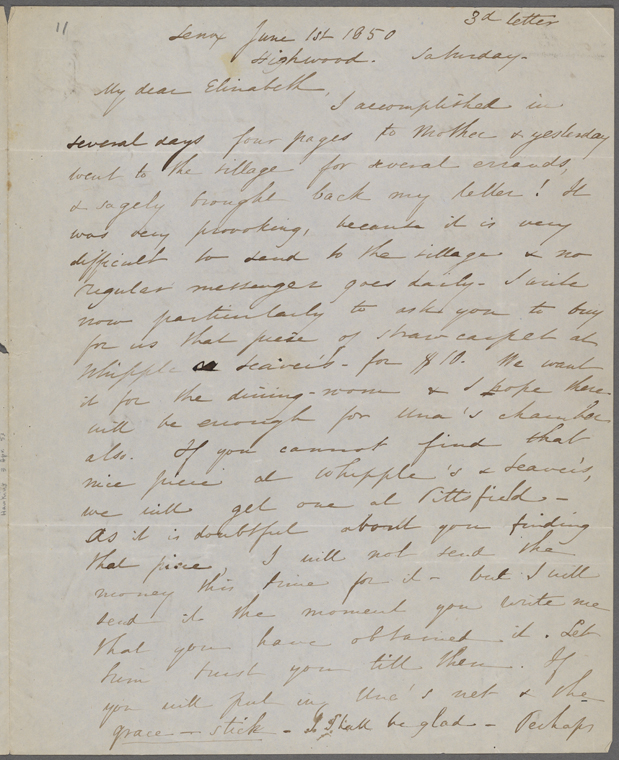 11
3d letter
Lenox June 1st 1850
Highwood. Saturday.
My dear Elizabeth,
I accomplished in
several days four pages to Mother & yesterday
went to the village for several errands,
& sagely brought back my letter! It
was very provoking, because it is very
difficult to send to the village & no
regular messenger goes daily - I write
now particularly to ask you to buy
for us that piece of straw carpet at
Whipple & Seaver's - for $10. We want
it for the dining-room & I hope there
will be enough for Una's chamber
also. If you cannot find that
nice piece at Whipple's & Seaver's,
we will get one at Pittsfield -
As it is doubtful about you finding
that piece, I will not send the
money this time for it - but I will
send it the moment you write me
that you have obtained it. Let
him trust you till then. If
you will put in Una's net & the
grace - stick - I shall be glad - Perhaps